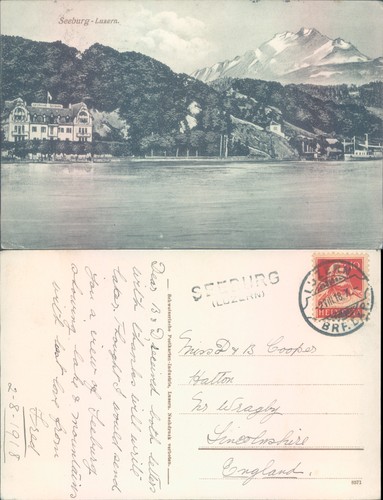 Seeburg - Luzern.
Dear B, Received both letters
with thanks will write
later. Thought I would send
you a view of Seeburg
shewing lake & mountains
with best love from
Fred
2-8-1918
Schweizerische Postkarten-Industrie, Luzern. Nachdruck verboten.
SEEBURG
(LUZERN)
HELVETIA
BRF.
Miss D & B Cooper
Hatton
Nr Wragby
Lincolnshire
England.